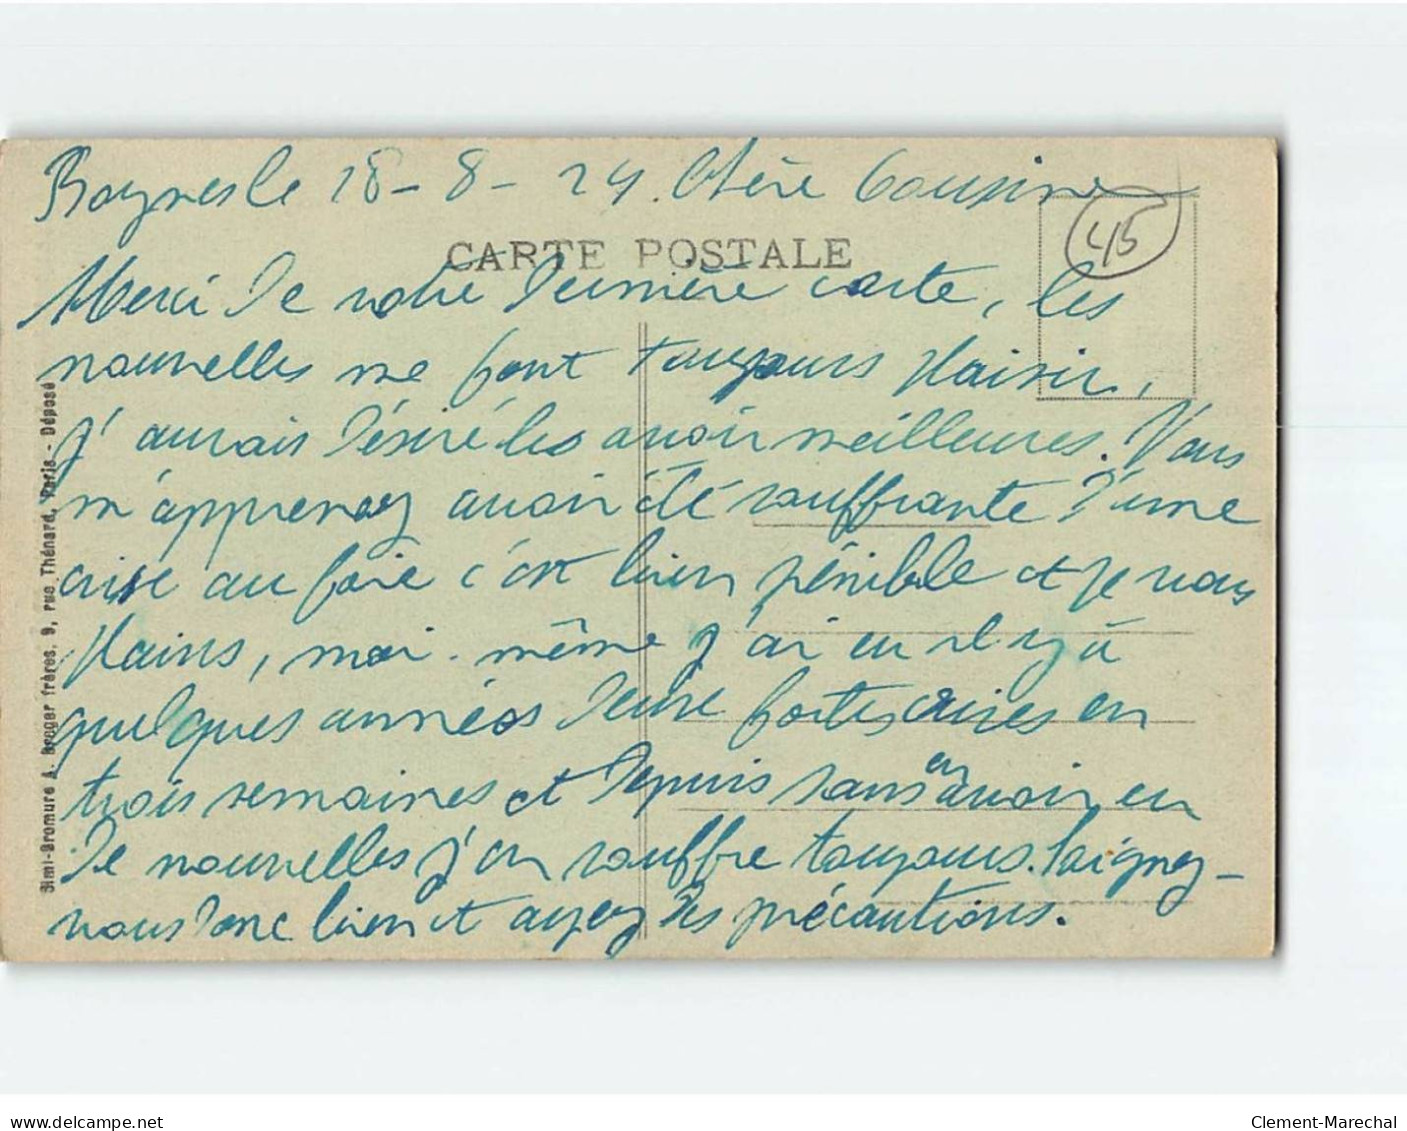 Boynes le 18-8-24. Chère Cousine
45
CARTE POSTALE
Merci de votre dernière carte, les
nouvelles me font toujours plaisir,
j'aurais désiré les avoir meilleures. Vous
m'apprenez avoir été souffrante d'une
crise au foie c'est bien pénible et je vous
plains, moi-même j'ai eu il y a
quelques années deux fortes crises en
trois semaines et depuis sans en avoir eu
de nouvelles j'en souffre toujours. Soignez-
vous donc bien et ayez des précautions.
Simi-Bromure A. Breger frères, 9, rue Thénard, Paris - Déposé
delcampe.net
Clement-Marechal